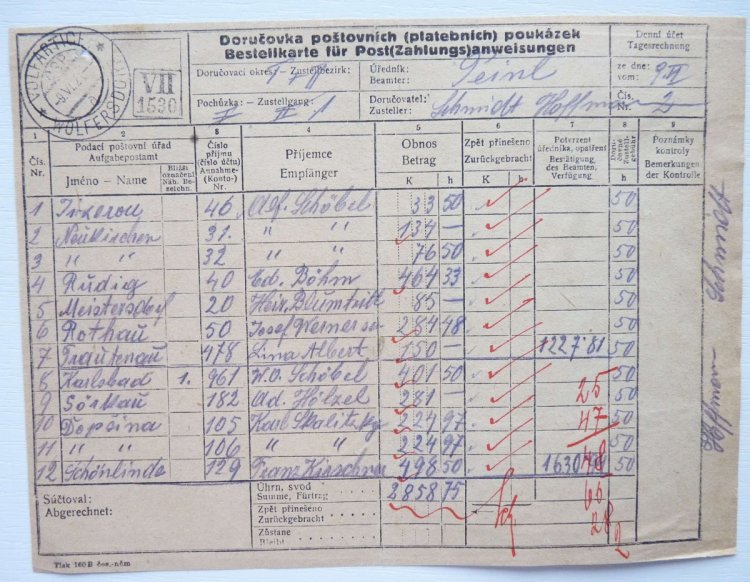 VOLFARTICE
WOLFERSDORF
VII
1530
Doručovka poštovních (platebních) poukázek
Bestellkarte für Post(Zahlungs)anweisungen
Denní účet
Tagesrechnung
Doručovací okres: – Zustellbezirk:
Úředník:
Beamter:
ze dne:
vom:
Pochůzka: – Zustellgang:
Doručovatel:
Zusteller: Schmidt Hoffman
Čís.
Nr. 2
1 2 3 4 5 6 7 8 9
Čís.
Nr.
Podací poštovní úřad
Aufgabepostamt
Jméno – Name
Bližší označení
Näh. Bezeichn.
Číslo příjmu (číslo účtu)
Annahme-(Konto-) Nr.
Příjemce
Empfänger
Obnos
Betrag
K h
Zpět přineseno
Zurückgebracht
K h
Potvrzení úředníka, opatření
Bestätigung des Beamten, Verfügung
Doručovné
Zustellgebühr
h
Poznámky kontroly
Bemerkungen der Kontrolle
1 46 Adf. Schöbel 33 50 50
2 Neukirchen 31. " " 134 – 50
3 " " 32 " " 76 50 50
4 Rudig 40 Ed. Böhm 464 33 50
5 Meistersdorf 20 Heir. Blumtritt 85 – 50
6 Rothau 50 Josef 284 48 50
7 Trautenau 478 Lina Albert 150 – 1227·81 50
8 Karlsbad 1. 961 W.O. Schöbel 401 50 50
9 Sörkau 182 Ad. Hölzel 281 – 25 50
10 Dopšina 105 Karl Skalitzky 224 97 47 50
11 " " 106 " " 224 97 50
12 Schönlinde 129 Franz Kirschner 498 50 1630 50
Súčtoval:
Abgerechnet:
Úhrn, svod
Summe, Fürtrag 2858 75
66
Zpět přineseno
Zurückgebracht
28
Zůstane
Bleibt
2
Tlak 160 B čes.-něm
Hoffman